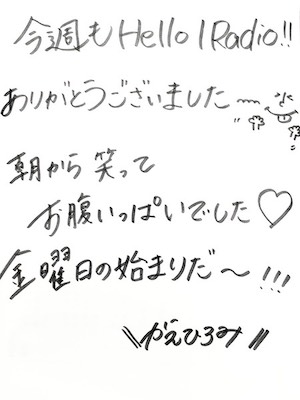 今週もHello! Radio!!
ありがとうございました〜
朝から笑って
お腹いっぱいでした♡
金曜日の始まりだ〜!!!
\\かえひろみ//